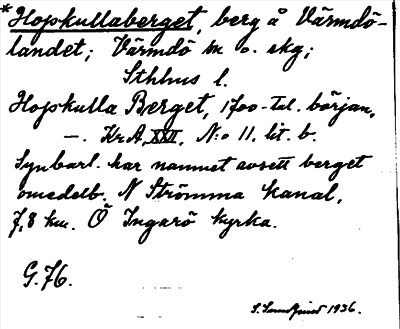 *Hopskullaberget, berg å Värmdö-
landet; Värmdö sn o. skg;
Sthlms l.
Hopskulla Berget, 1700-tal. början,
—. Kr.A, XXII, N:o 11. lit. b.
Synbarl. har namnet avsett berget
omedelb. N Strömma kanal,
7,8 km. Ö Ingarö kyrka.
G. 76.
S. Sundqvist 1936.